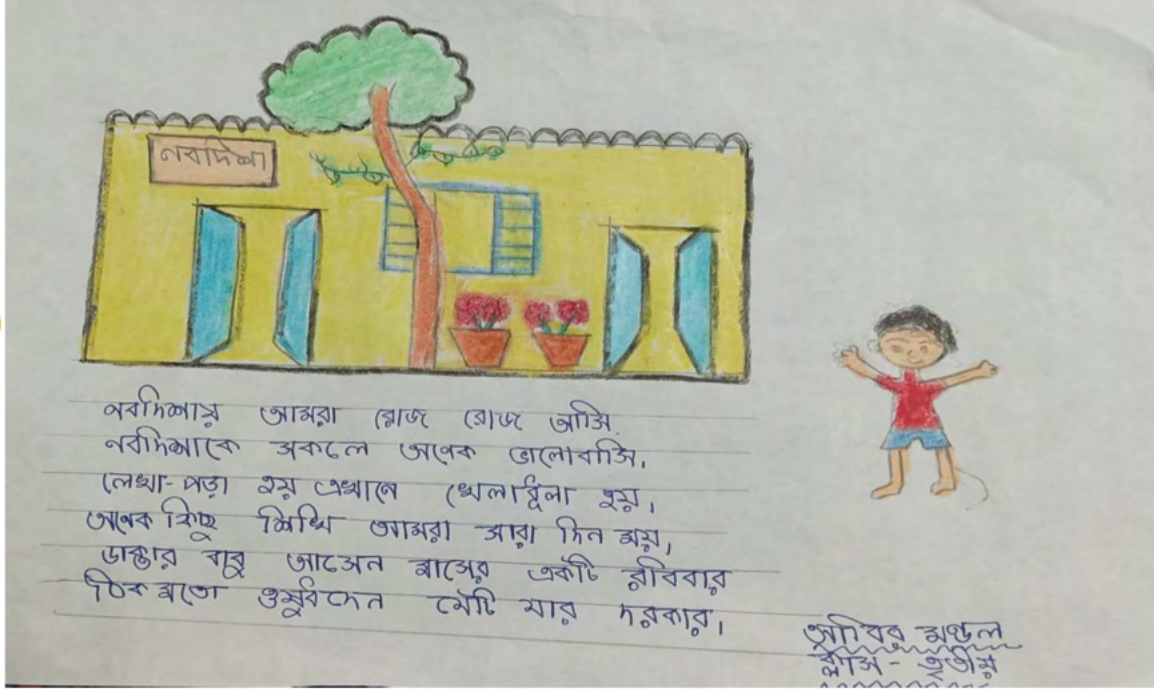 নবদিশা
নবদিশায় আমরা রোজ রোজ আসি.
নবদিশাকে সকলে অনেক ভালোবাসি,
লেখা-পড়া হয় এখানে খেলাধূলা হয়,
অনেক কিছু শিখি আমরা সারা দিন ময়,
ডাক্তার বাবু আসেন মাসের একটি রবিবার
ঠিক মতো ওষুধ দেন যেটি যার দরকার,
সাবির মণ্ডল
ক্লাস - তৃতীয়